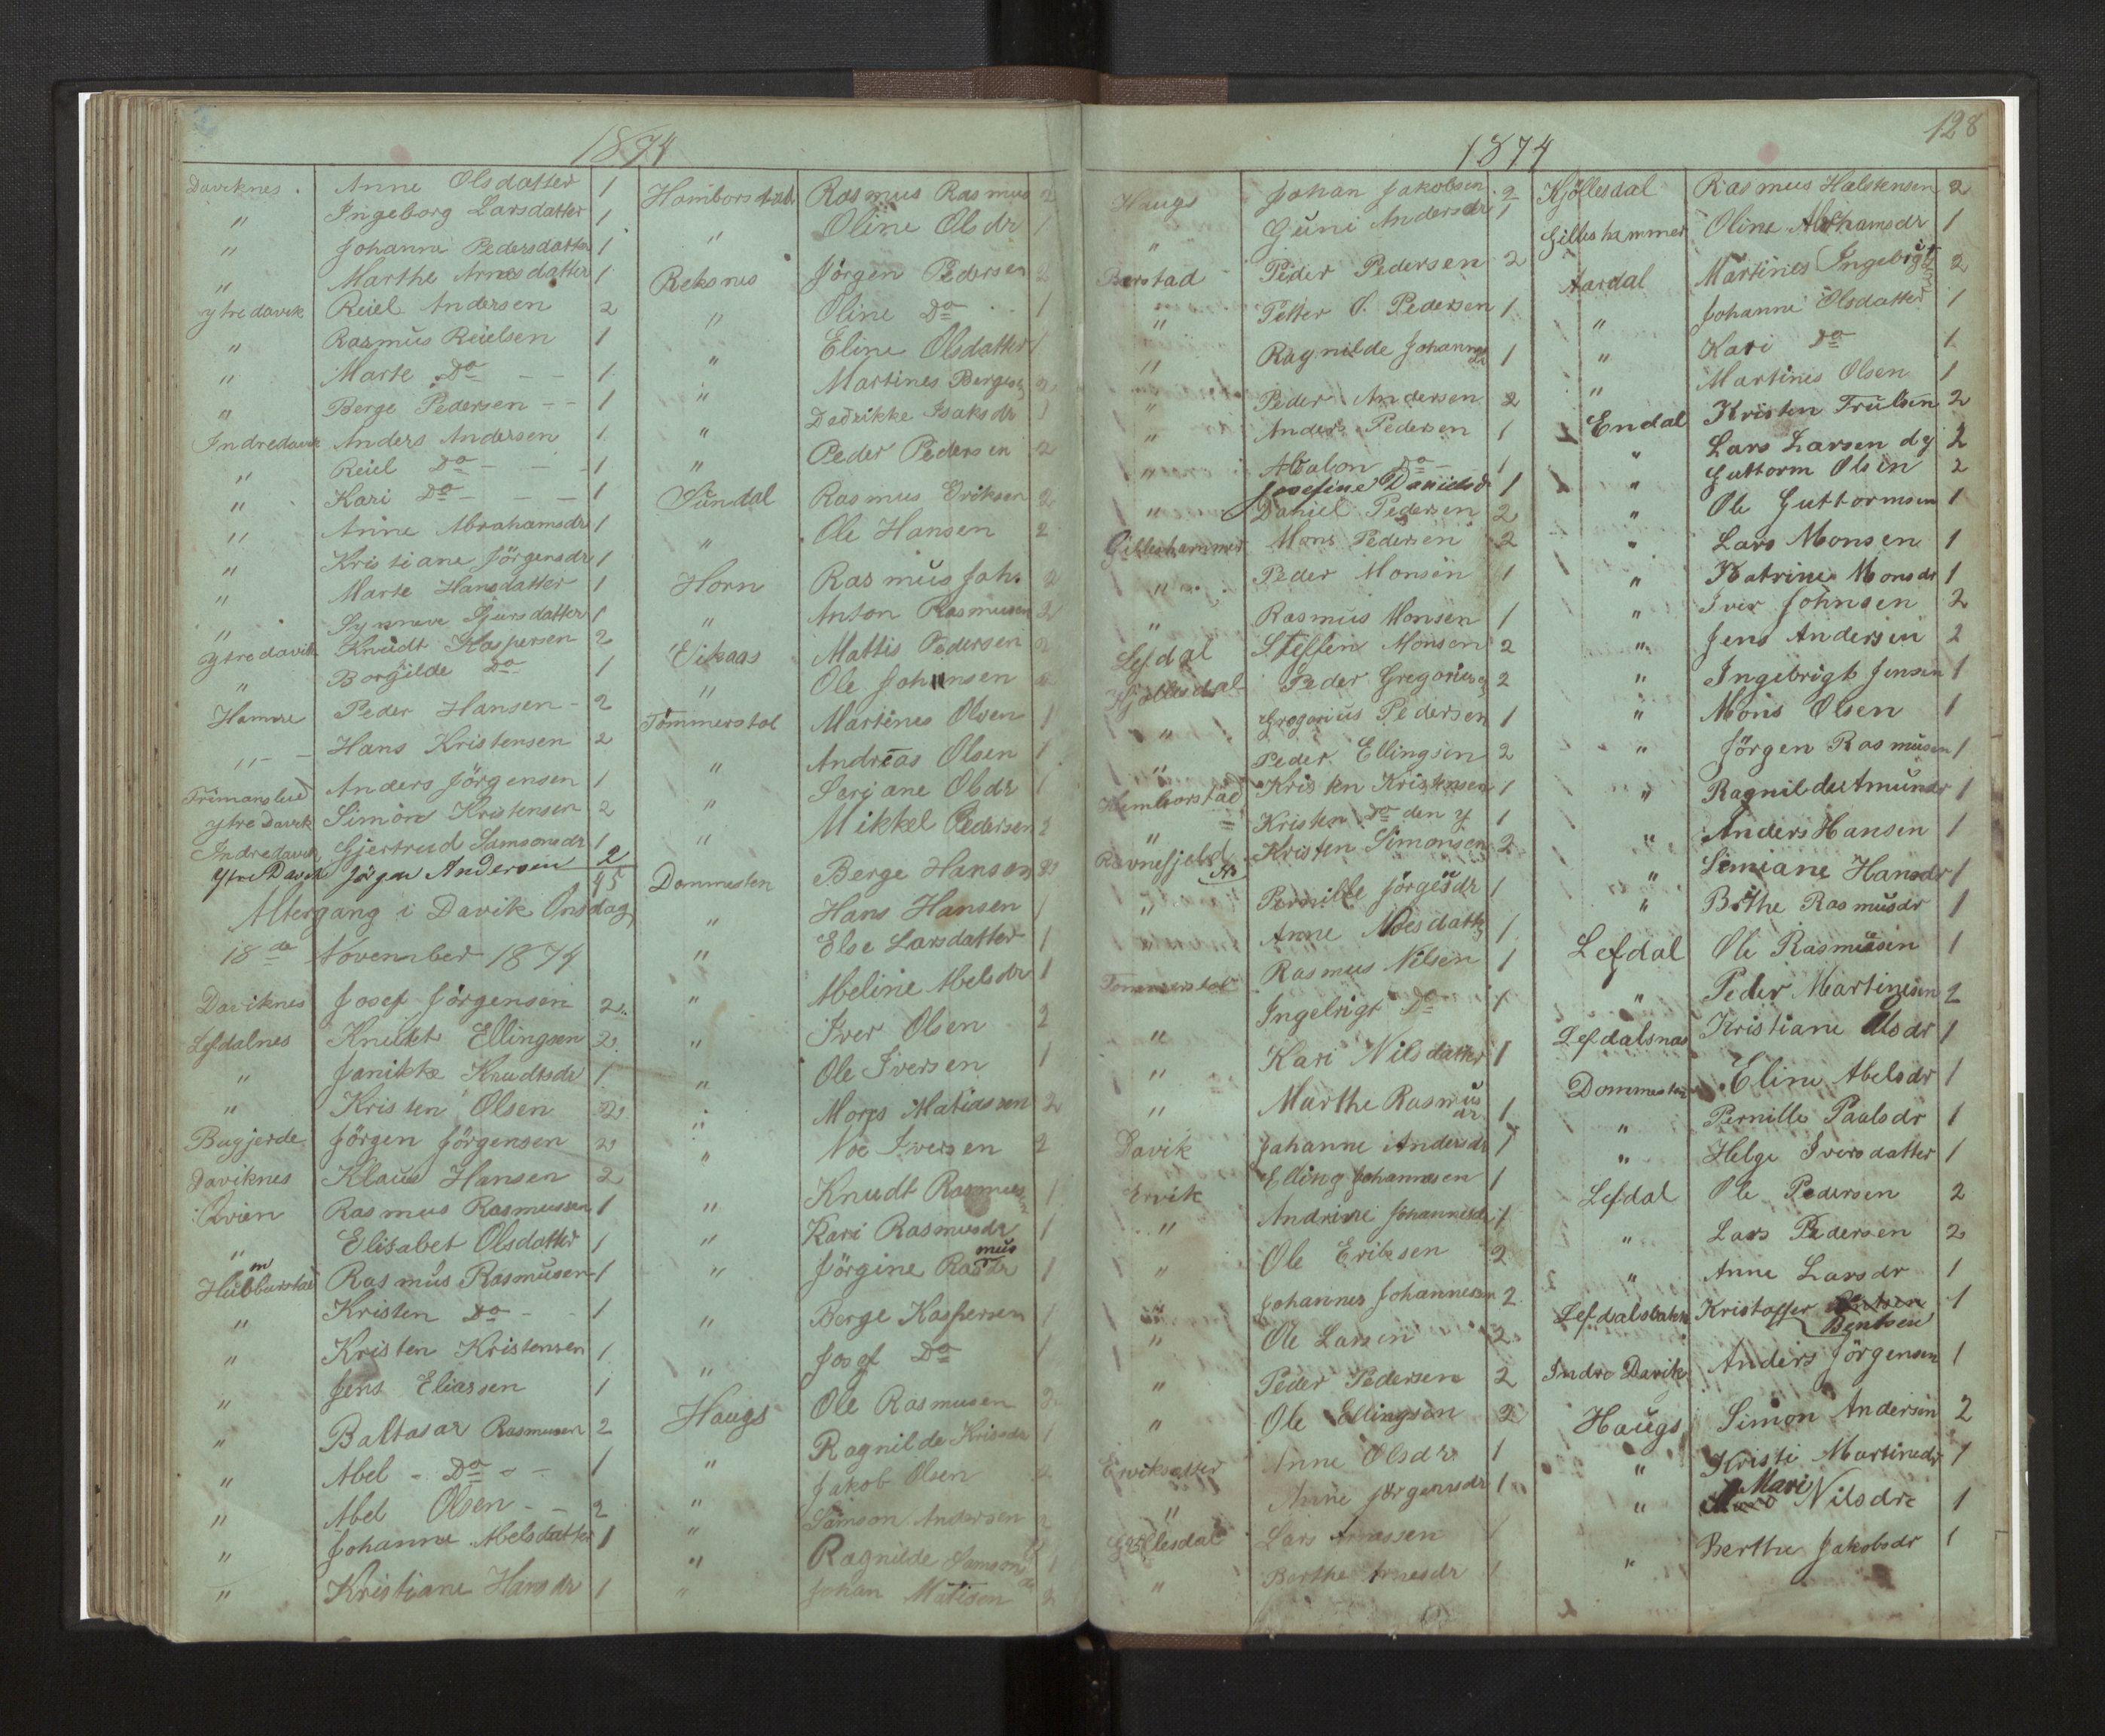 1874
Daviknes. Anne Olsdatter 1
" Ingeborg Larsdatter 1
" Johanne Pedersdatter 1
" Marthe Arnesdatter 1
ytre davik Reiel Andersen 2
" Rasmus Reielsen 1
" Marte Do - - 1
" Berge Pedersen - - 1
Indredavik Anders Andersen 1
" Reiel Do - - - 1
" Kari Do - - - 1
" Anne Abrahamsdr 1
" Kristiane Jörgensdr 1
" Marte Hansdatter 1
" Synneve Sjursdatter 1
ytre davik Knudt Kaspersen 2
" Borgilde Do 1
Hamre Peder Hansen - 2
" - Hans Kristensen 2
Anders Jörgensen 1
ytre Davik Simon Kristensen 2
Indredavik Gjertrud Samsonsdr 1
Ytre Davik Jörgen Andersen 2
95
Altergang i Davik Onsdag
18de November 1874
Daviknes Josef Jörgensen 2
Lefdalnes Knudt Ellingsen 2
" Janikke Knudtsdr 1
" Kristen Olsen 2
Bugjerde Jörgen Jörgensen 2
Daviknes Klaus Hansen 2
Rasmus Rasmussen 1
" Elisabet Olsdatter 1
Rasmus Rasmusen 1
" Kristen Do - - 1
" Kristen Kristensen 1
" Jens Eliassen 1
" Baltasar Rasmusen 2
" Abel - Do - - 1
" Abel Olsen - - 2
" Johanne Abelsdatter 1
" Kristiane Hansdr 1
Hamborstad Rasmus Rasmus 2
" Oline Olsdr 1
Reksnes Jörgen Pedersen 2
" Oline Do . . 1
" Eline Olsdatter 1
" Martines Berges 2
" Dedrikke Isaksdr 1
" Peder Pedersen 2
Sundal Rasmus Eriksen 2
" Ole Hansen 2
Horn Rasmus Joh. 2
" Anton Rasmusen 2
Eikaas Mattis Pedersen 2
" Ole Johansen
Tommerstol Martines Olsen 1
" Andreas Olsen 1
" Seriane Olsdr 1
" Mikkel Pedersen 2
Dommesten Berge Hansen 2
" Hans Hansen 1
" Else Larsdatter 1
" Abeline Abelsdr 1
" Iver Olsen 2
" Ole Iversen 1
" Mons Matiassen 2
" Noe Iversen 2
" Knudt Rasmus 1
" Kari Rasmusdr 1
" Jörgine Rasmusdr 1
" Berge Kaspersen 1
" Josef Do 1
Haugs Ole Rasmusen 2
" Ragnilde Krisdr 1
" Jakob Olsen 2
" Samson Andersen 2
" Ragnilde Samsondr 1
" Johan Matisen 2
1874
128
Haugs Johan Jakobsen 2
" Guni Andersdr 1
Berstad Peder Pedersen 2
" Petter O. Pedersen 1
" Ragnilde Johannesdr 1
" Peder Andersen 2
" Anders Pedersen 1
" Absalon Do - 1
Josefine Danielsdr 1
" Daniel Pedersen 2
Gilleshammer Mons Pedersen 2
" Peder Monsen 1
" Rasmus Monsen 1
Lefdal Steffen Monsen 2
Kjöllesdal Peder Gregorius 2
" Gregorius Pedersen 1
" Peder Ellingsen 2
Hemborstad Kristen Kristensen 1
" Kristen Do den y 1
Ravnefjeld Kristen Simonsen 2
" Pernille Jörgesdr 1
" Anne Noesdatter 1
Tommerstol Rasmus Nilsen 1
" Ingebrigt Do 1
" Kari Nilsdatter 1
" Marthe Rasmusdr 1
Davik Johanne Andersdr 1
Ervik Elling Johannesen 1
" Andrine Johannesdr 1
" Ole Eriksen 2
" Johannes Johannesen 2
" Ole Larsen 2
" Peder Pedersen 2
" Ole Ellingsen 2
Erviksætter Anne Olsdr 1
" Anne Jörgensdr 1
Lars Arnessen 1
" Berthe Arnesdr 1
Kjöllesdal Rasmus Halstensen 2
Gilleshammer Oline Abrhamsdr 1
Aardal Martines Ingebrigt 2
" Johanne Olsdatter 1
" Kari Do 1
" Martines Olsen 1
Endal Kristen Trulsen 2
" Lars Larsen dy 2
Guttorm Olsen 2
" Ole Guttormsen 1
" Lars Monsen 1
" Katrine Monsdr 1
" Iver Johnsen 2
" Jens Andersen 2
" Ingebrigt Jensen 1
" Mons Olsen 1
" Jörgen Rasmusen 1
" Ragnilde Amundr 1
" Anders Hansen 1
" Simiane Hansdr 1
" Brithe Rasmusdr 1
Lefdal Ole Rasmusen 1
" Peder Martinesen 2
Lefdalsnæs Kristiane Olsdr 1
Dommesten Eline Abelsdr 1
" Pernille Paalsdr 1
" Helge Iversdatter 1
Lefdal Ole Pedersen 2
" Lars Pedersen 2
" Anne Larsdr 1
Lefdalsbakke Kristoffer Bentsen 1
Indre Davik Anders Jörgensen 1
Haugs Simon Andersen 2
" Kristi Martinedr 1
" Mari Nilsdr 1
" Berthe Jakobsdr 1